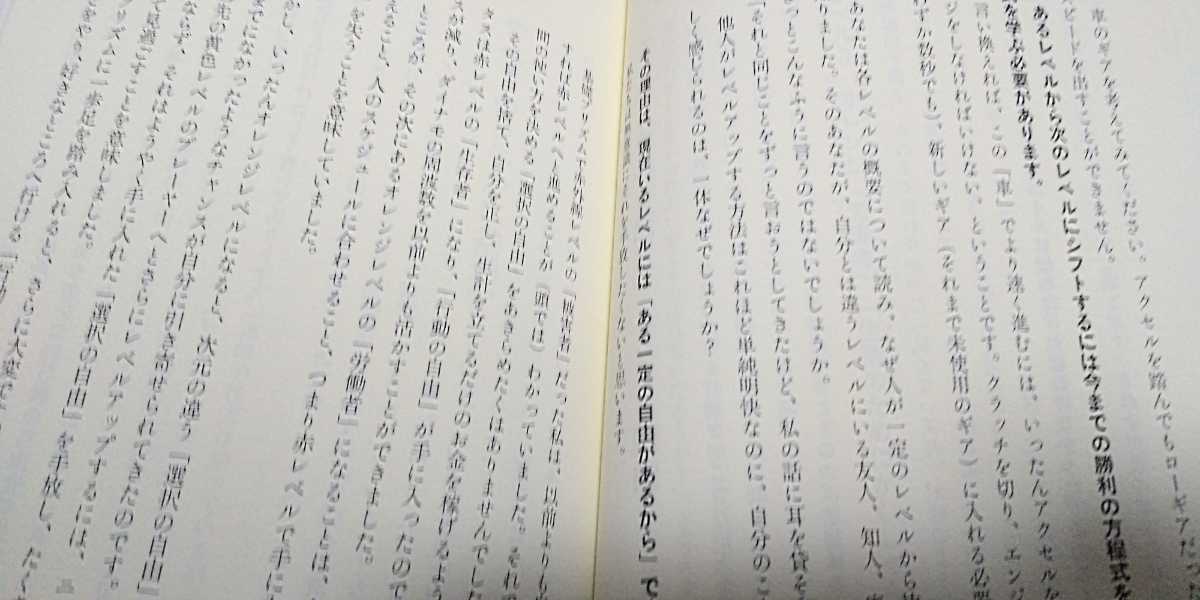 車のギアを変えてみてください。アクセルを踏んでもローギアだっ
スピードを出すことができません。
あるレベルから次のレベルにシフトするには今までの勝利の方程式を
を学ぶ必要があります。
言い換えれば、この『車』でより速く進むには、いったんアクセルな
ジをしなければいけない、ということです。クラッチを切り、エンジ
わずか数秒でも）、新しいギア（それまで未使用のギア）に入れる必要
あなたは各レベルの概要について読み、なぜ人が一定のレベルから
りました。そのあなたが、自分とは違うレベルにいる友人、知人、
っとこんなふうに言うのではないでしょうか。
「それと同じことをずっと言おうとしてきたけど、私の話に耳を貸そ
他人がレベルアップする方法はこれほど単純明快なのに、自分のこ
しく感じられるのは、一体なぜでしょうか？
その理由は、現在いるレベルには「ある一定の自由があるから」で
手放したくないと思います。
基底プリズム下赤外線レベルの「被害者」だった私は、以前よりも
すれば赤レベルへと進めることが（頭では）わかっていました。それ
間の使い方を決める「選択の自由」をあきらめたくはありませんでし
その自由を捨て、自分を正し、生計を立てるだけのお金を稼げるよう
クスは赤レベルの「生存者」になり、「行動の自由」が手に入ったので
スが減り、ダイナモの周波数を以前よりも活かすことができました。
ところが、その次にあるオレンジレベルの「労働者」になることは、
えること、人のスケジュールに合わせること、つまり赤レベルで手に
を失うことを意味していました。
かし、いったんオレンジレベルになると、次元の違う「選択の自由」
までになかったようなチャンスが自分に引き寄せられてきたのです。
先の黄色レベルのプレーヤーへとさらにレベルアップするには、
ならず、それはようやく手に入れた「選択の自由」を手放し、たく
見過ごすことを意味しました。
リズムに一歩足を踏み入れると、さらに大変で
をやき、好きなところへ行ける